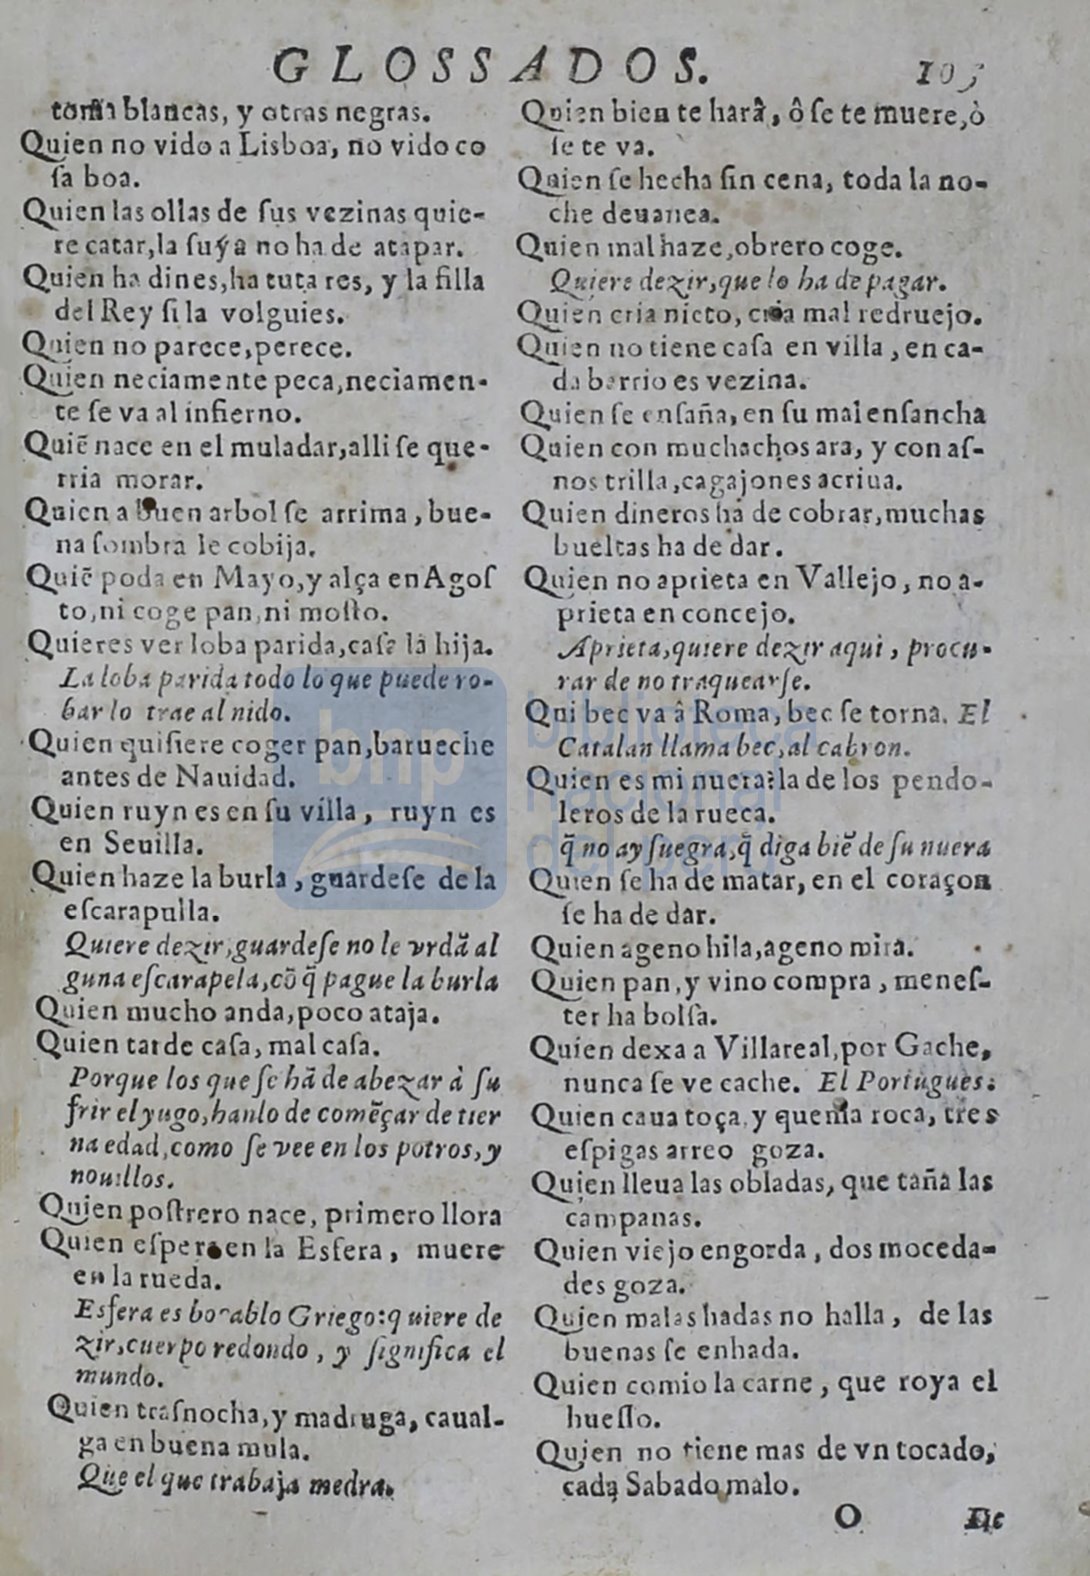 GLOSSADOS. 105
toma blancas, y otras negras.
Quien no vido a Lisboa, no vido co
ſa boa.
Quien las ollas de ſus vezinas quie-
re catar, la ſuya no ha de atapar.
Quien ha dines, ha tuta res, y la filla
del Rey ſi la volguies.
Quien no parece, perece.
Quien neciamente peca, neciamen-
te ſe va al infierno.
Quiē nace en el muladar, alli ſe que-
rria morar.
Quien a buen arbol ſe arrima, bue-
na ſombra le cobija.
Quiē poda en Mayo, y alça en Agoſ
to, ni coge pan, ni moſto.
Quieres ver loba parida, caſa la hija.
La loba parida todo lo que puede ro-
bar lo trae al nido.
Quien quiſiere coger pan, barueche
antes de Nauidad.
Quien ruyn es en ſu villa, ruyn es
en Seuilla.
Quien haze la burla, guardeſe de la
eſcarapulla.
Quiere dezir, guardeſe no le vrdā al
guna eſcarapela, cō q̄ pague la burla
Quien mucho anda, poco ataja.
Quien tarde caſa, mal caſa.
Porque los que ſe hā de abezar à ſu
frir el yugo, hanlo de comēçar de tier
na edad, como ſe vee en los potros, y
nouillos.
Quien poſtrero nace, primero llora
Quien eſpera en la Esfera, muere
en la rueda.
Esfera es bocablo Griego: quiere de
zir, cuerpo redondo, y ſignifica el
mundo.
Quien traſnocha, y madruga, caual-
ga en buena mula.
Que el que trabaja medra.
Quien bien te harâ, ô ſe te muere, ò
ſe te va.
Quien ſe hecha ſin cena, toda la no-
che deuanea.
Quien mal haze, obrero coge.
Quiere dezir, que lo ha de pagar.
Quien cria nieto, cria mal redruejo.
Quien no tiene caſa en villa, en ca-
da barrio es vezina.
Quien ſe enſaña, en ſu mal enſancha
Quien con muchachos ara, y con aſ-
nos trilla, cagajones acriua.
Quien dineros ha de cobrar, muchas
bueltas ha de dar.
Quien no aprieta en Vallejo, no a-
prieta en concejo.
Aprieta, quiere dezir aqui, procu-
rar de no traquearſe.
Qui bec va â Roma, bec ſe torna. El
Catalan llama bec, al cabron.
Quien es mi nuera? la de los pendo-
leros de la rueca.
q̄ no ay ſuegra, q̄ diga biē de ſu nuera
Quien ſe ha de matar, en el coraçon
ſe ha de dar.
Quien ageno hila, ageno mira.
Quien pan, y vino compra, meneſ-
ter ha bolſa.
Quien dexa a Villareal, por Gache,
nunca ſe ve cache. El Portugues.
Quien caua toça, y quema roca, tres
eſpigas arreo goza.
Quien lleua las obladas, que taña las
campanas.
Quien viejo engorda, dos moceda-
des goza.
Quien malas hadas no halla, de las
buenas ſe enhada.
Quien comio la carne, que roya el
hueſſo.
Quien no tiene mas de vn tocado,
cada Sabado malo.
O
bnp biblioteca
nacional
del perú